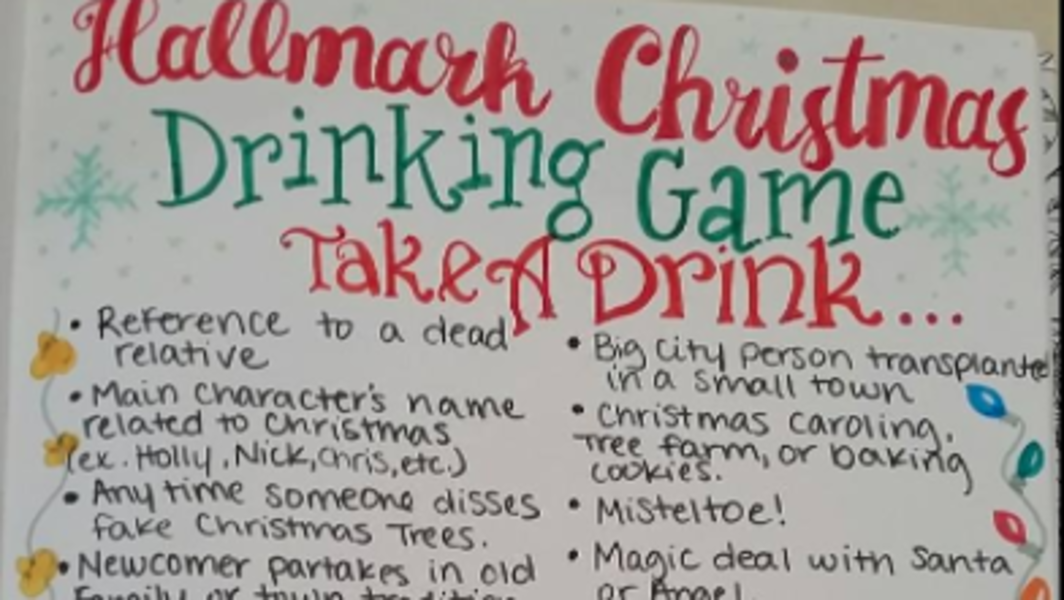 Hallmark Christmas
Drinking Game
Take A Drink...
• Reference to a dead
relative
• Main Character's name
related to Christmas
(ex. Holly, Nick, Chris, etc.)
• Any time someone disses
fake Christmas Trees.
• Newcomer partakes in old
Family or town tradition
• Big City person transplanted
in a small town
• Christmas Caroling,
Tree farm, or baking
cookies.
• Misteltoe!
• Magic deal with Santa
or Angel